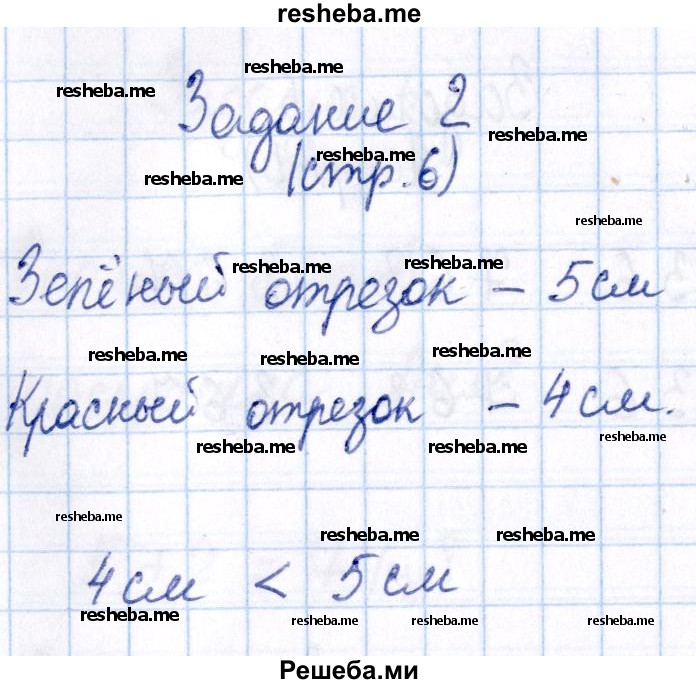 resheba.me
resheba.me
resheba.me
Задание 2
resheba.me
resheba.me
resheba.me
(стр.6)
resheba.me
resheba.me
resheba.me
Зелёный отрезок – 5 см
resheba.me
resheba.me
resheba.me
Красный отрезок – 4 см.
resheba.me
resheba.me
resheba.me
resheba.me
resheba.me
resheba.me
4 см < 5 см
resheba.me
resheba.me
resheba.me
resheba.me
Решеба.ми